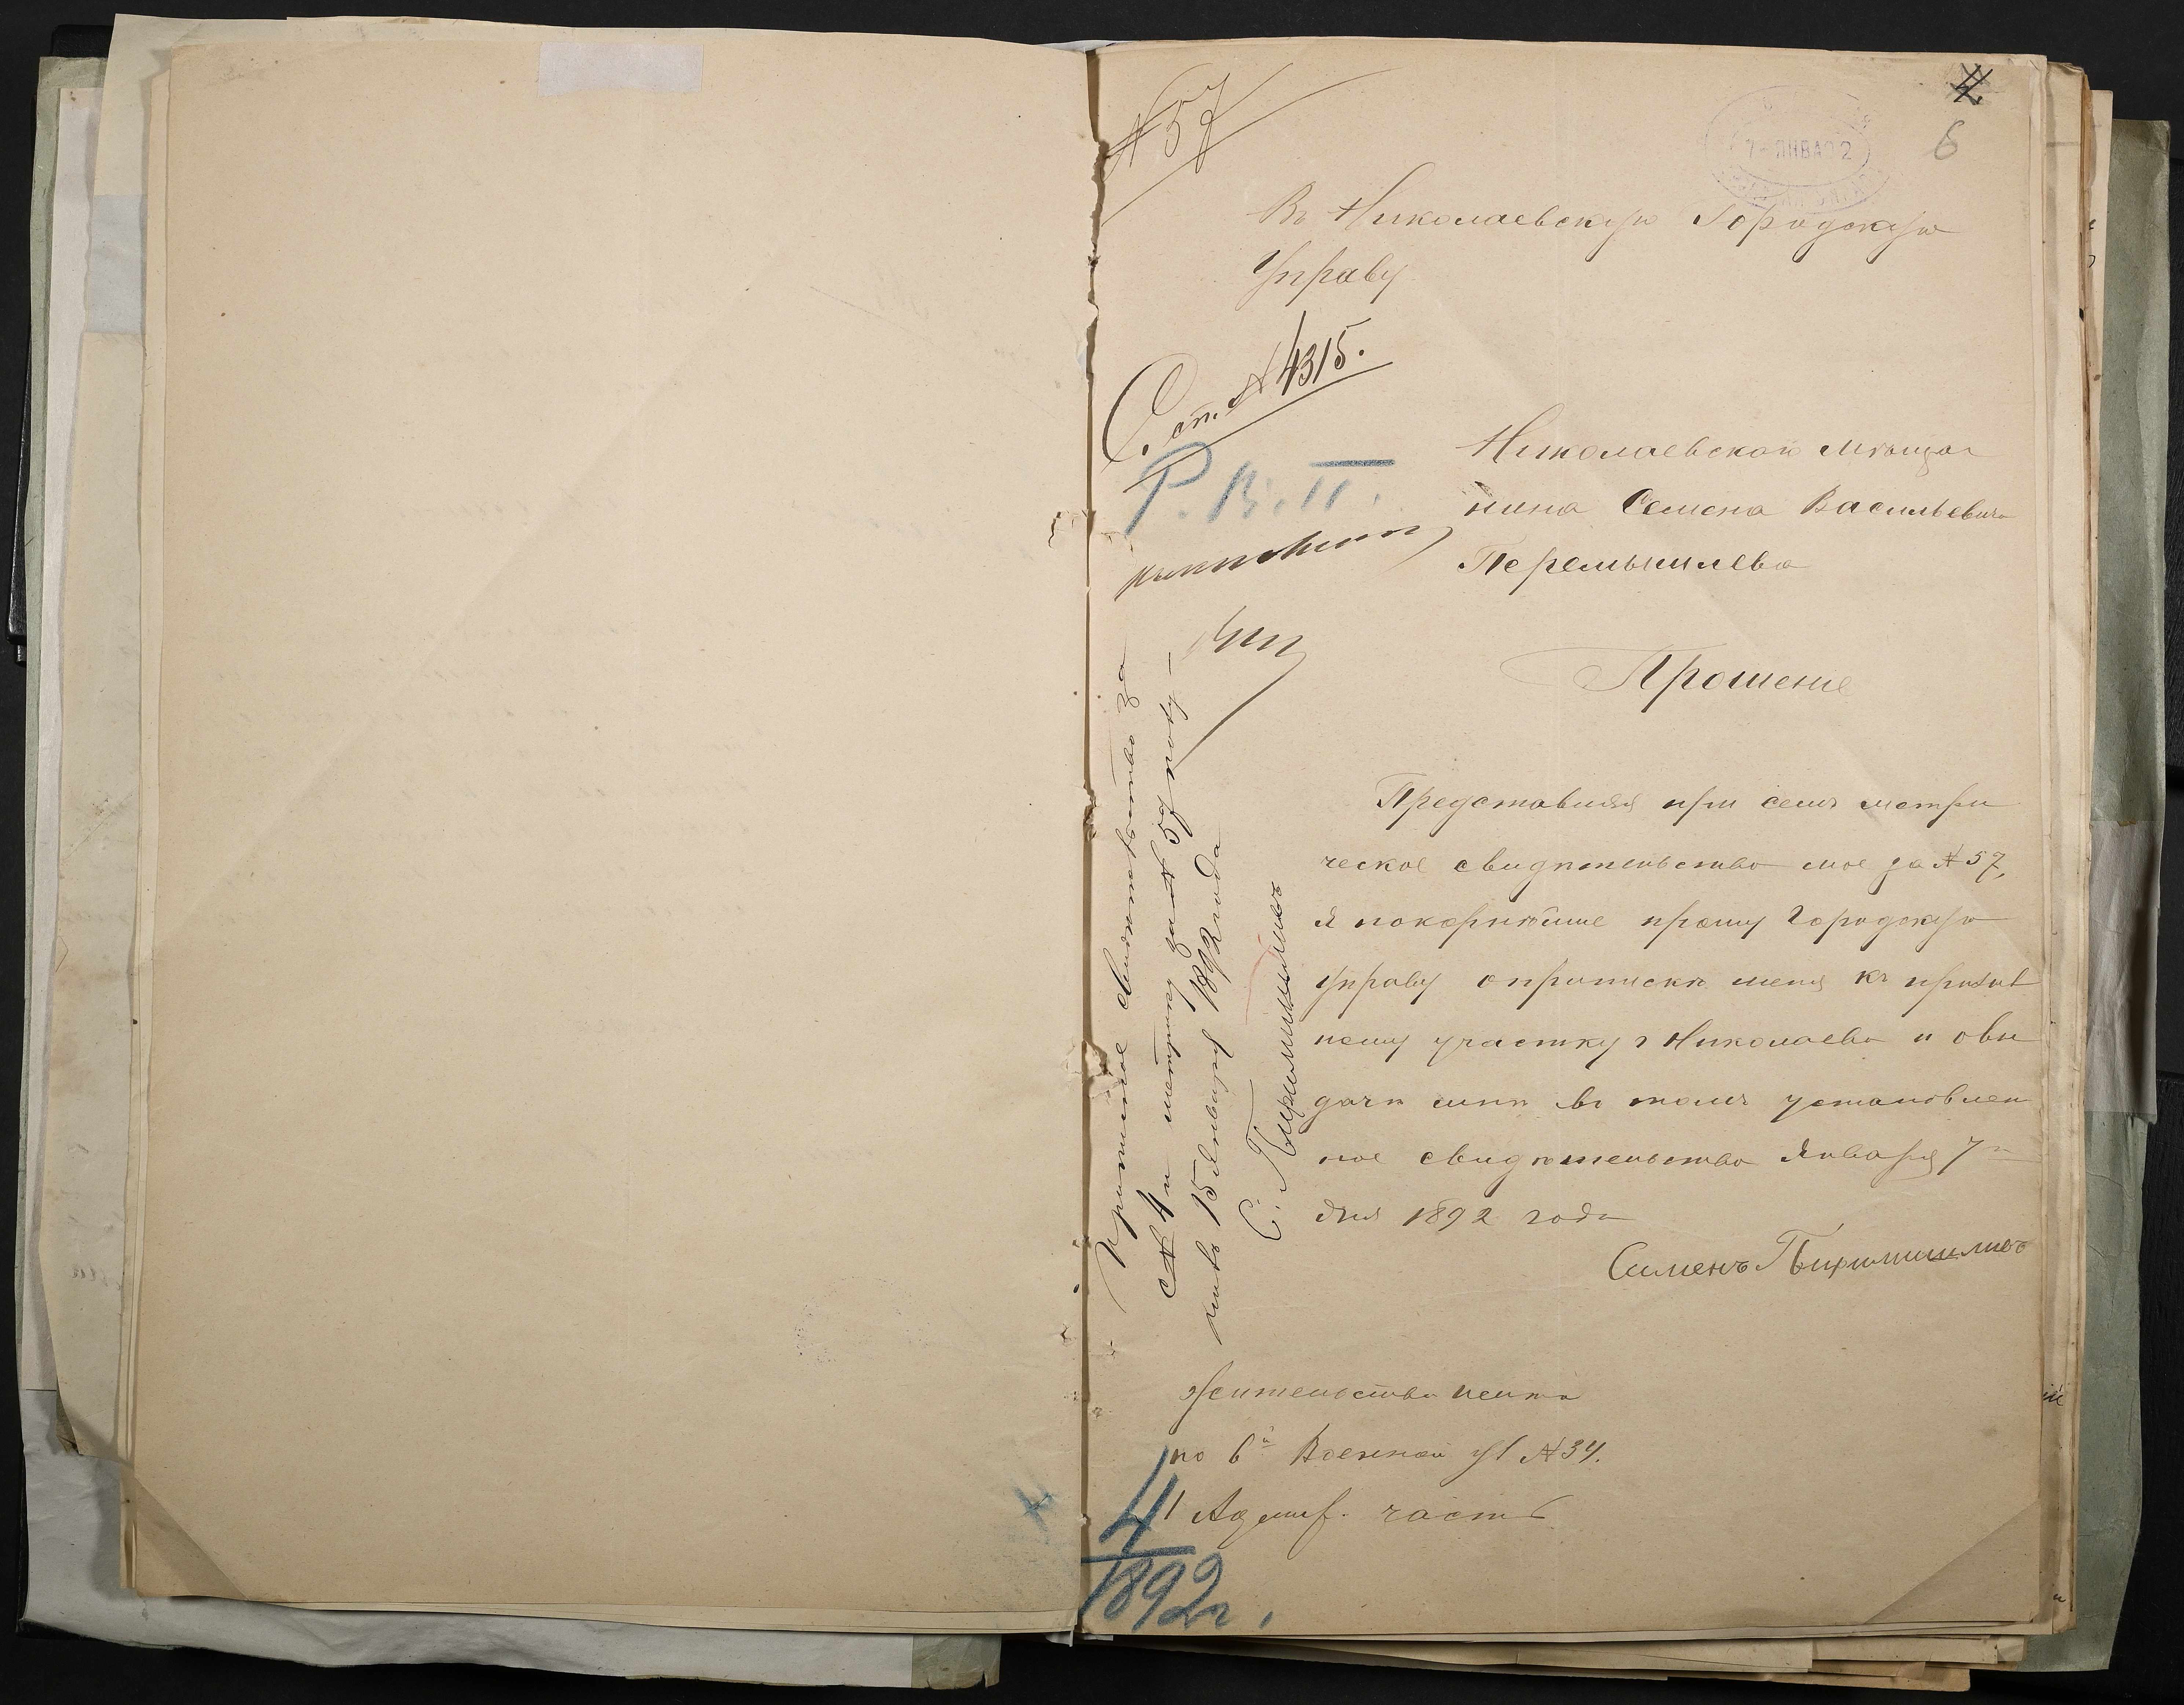 № 57
4.
6
7 ЯНВА 92
Въ Николаевскую Городскую
Управу
Ст. № 4315.
Р. В. П.
Николаевскаго мѣщан
нина Семена Васильевича
Перемышлева
Прошеніе
Представляя при семъ метри
ческое свидѣтельство мое за № 57,
я покорнѣйше прошу Городскую
Управу о припискѣ меня къ призыв
ному участку г Николаева и о вы
дачѣ мнѣ въ томъ установлен
ное свидѣтельство Января 7го
дня 1892 года
Сименъ Пиримишливъ
Приписное свидѣтельство за
№ 4 и метрику за № 57 полу-
чивъ 15 Января 1892 года
С. Пиримишливъ
Жительство имѣю
по 6й Военной ул № 34.
1 Адмир. часть
4
1892 г.